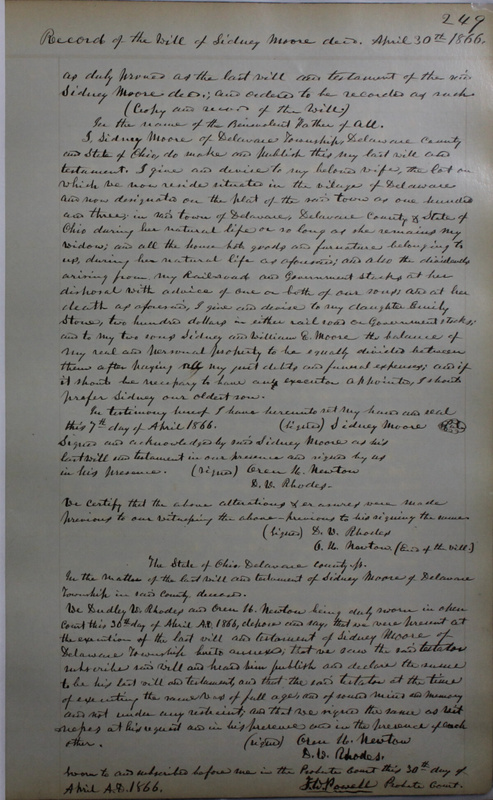 249
Record of the Will of Sidney Moore decd. April 30th 1866.
as duly proved as the last will and testament of the said
Sidney Moore decd.; and ordered to be recorded as such
(Copy and record of the Will.)
In the name of the Benevolent Father of All.
I, Sidney Moore of Delaware Township, Delaware County
and State of Ohio, do make and publish this my last will and
testament. I give and devise to my beloved wife, the Lot on
which we now reside situated in the village of Delaware
and now designated on the plat of the said town as one hundred
and three, in said town of Delaware, Delaware County & State of
Ohio during her natural life or so long as she remains my
widow; and all the house hold goods and furniture belonging to
us, during her natural life as aforesaid; and also the dividends
arising from my Railroad and Government stocks at her
disposal with advice of one or both of our sons and at her
death as aforesaid, I give and devise to my daughter Emily
Stowe, two hundred dollars in either rail road or Government stocks;
and to my two sons Sidney and William E. Moore the balance of
my real and personal property to be equally divided between
them after paying all my just debts and funeral expenses; and if
it should be necessary to have any executor appointed, I should
prefer Sidney our oldest son.
In testimony hereof I have hereunto set my hand and seal
this 7th day of April 1866. (Signed) Sidney Moore Seal
Signed and acknowledged by said Sidney Moore as his
last will and testament in our presence and signed by us
in his presence. (signed) Oren H. Newton
D. W. Rhodes.
We certify that the above alterations & erasures were made
previous to our witnessing the above & previous to his signing the same
(Signed) D. W. Rhodes
O. H. Newton (End of the Will.)
The State of Ohio Delaware County ss.
In the matter of the last will and testament of Sidney Moore of Delaware
Township in said County deceased.
We Dudley W. Rhodes and Oren H. Newton being duly sworn in open
Court this 30th day of April A.D. 1866, depose and say that we were present at
the execution of the last will and testament of Sidney Moore of
Delaware Township hereto annexed; that we saw the said testator
subscribe said will and heard him publish and declare the same
to be his last will and testament, and that the said testator at the time
of executing the same was of full age and of sound mind and memory
and not under any restraint; and that we signed the same as wit
nesses at his request and in his presence and in the presence of each
other. (signed) Oren H. Newton
D. W. Rhodes.
Sworn to and subscribed before me in the Probate Court this 30th day of
April A.D. 1866. Powell Probate Court.